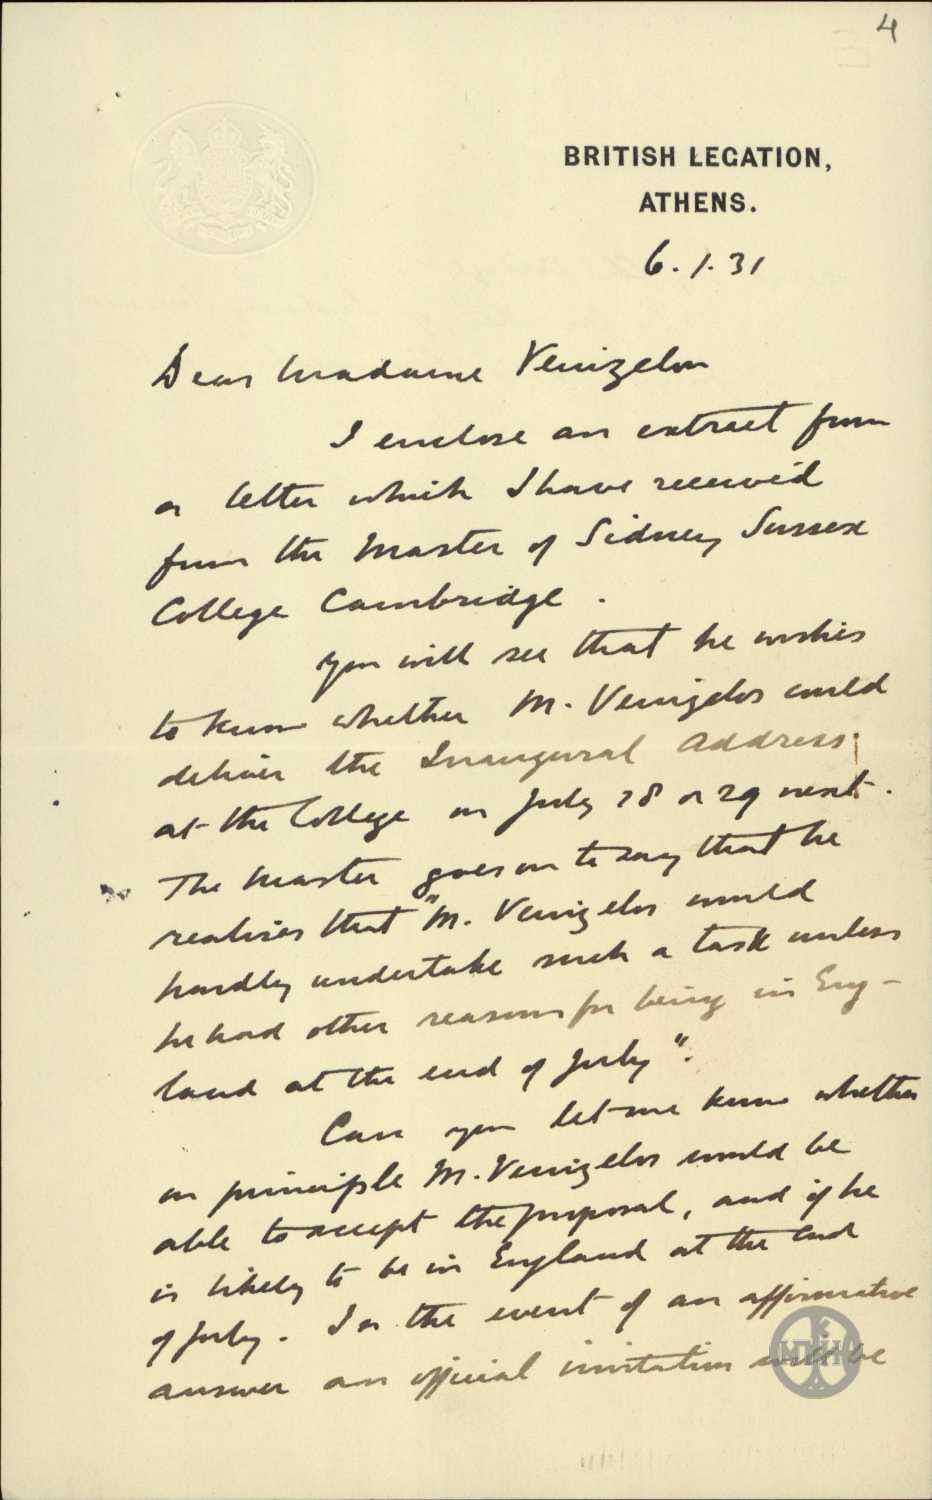 4
BRITISH LEGATION,
ATHENS.
6.1.31
Dear Madame Venizelos
I enclose an extract from
a letter which I have received
from the Master of Sidney Sussex
College Cambridge.
You will see that he wishes
to know whether M. Venizelos could
deliver the Inaugural Address
at the College on July 28 or 29 next.
The Master goes on to say that he
realises that "M. Venizelos would
hardly undertake such a task unless
he had other reasons for being in Eng-
land at the end of July".
Can you let me know whether
in principle M. Venizelos would be
able to accept the proposal, and if he
is likely to be in England at the end
of July. In the event of an affirmative
answer an official invitation will be